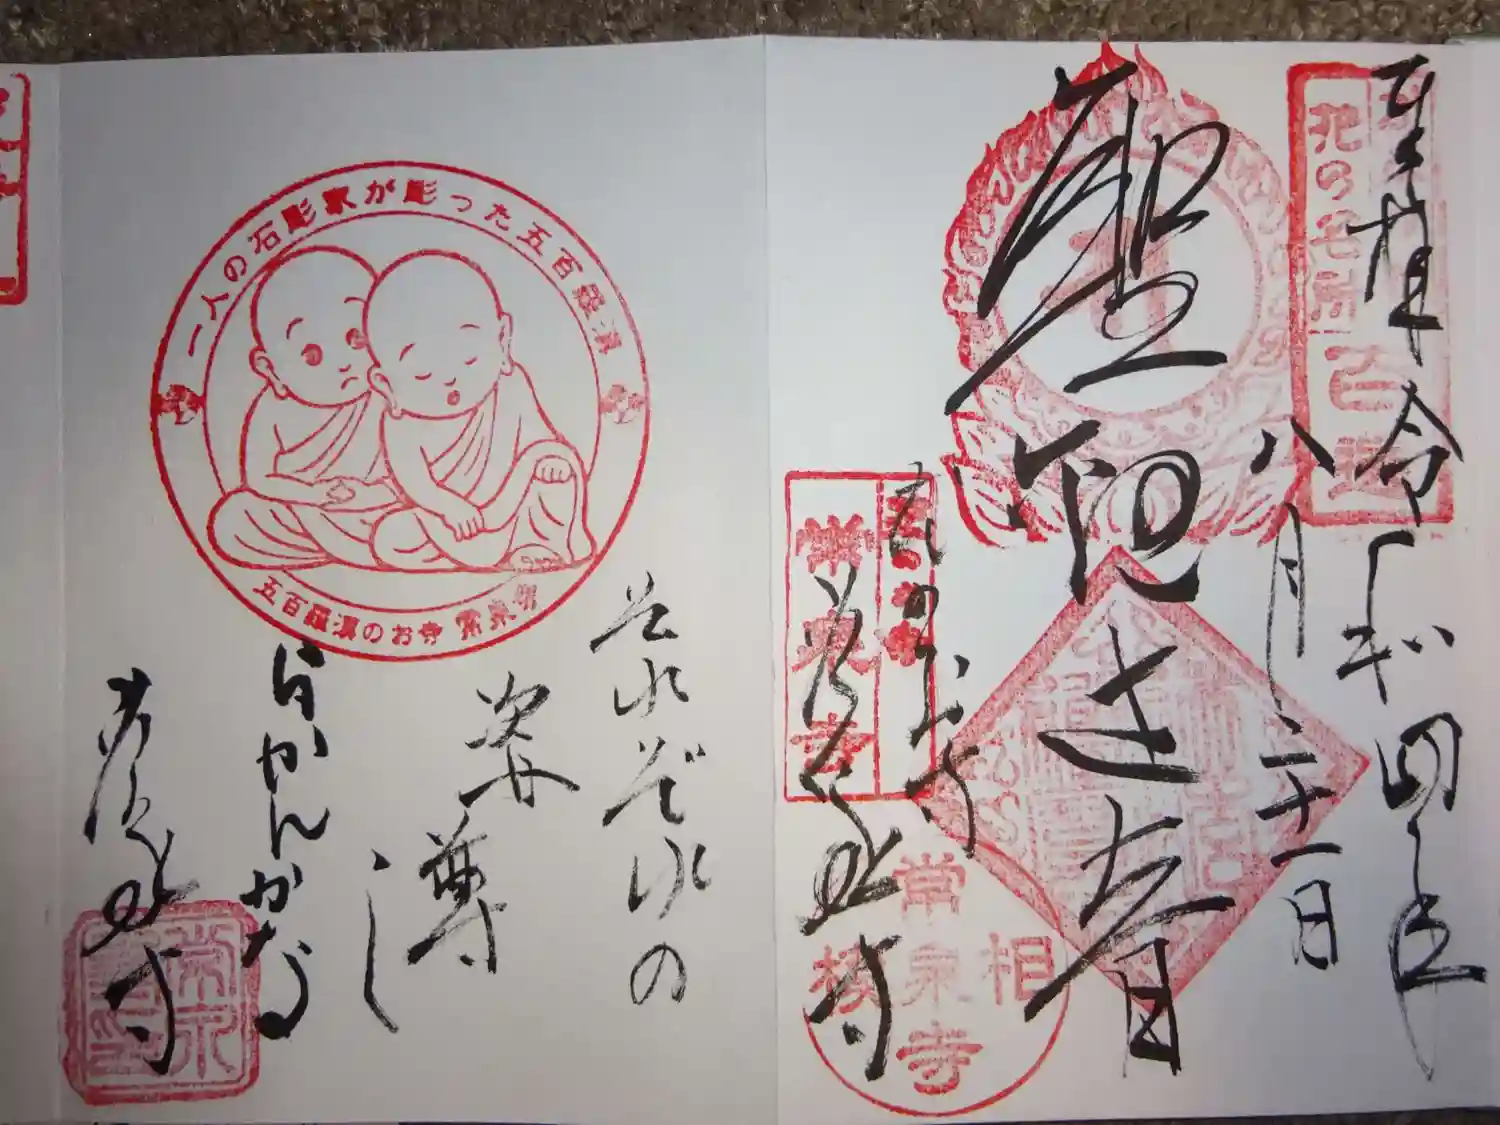 奉拝
令和四年
八月二十一日
聖観世音
花のお寺
常泉寺
常泉寺
相模
常泉寺
一人の石彫家が彫った五百羅漢
五百羅漢のお寺 常泉寺
それぞれの
姿
尊
し
らかんかな
常泉寺